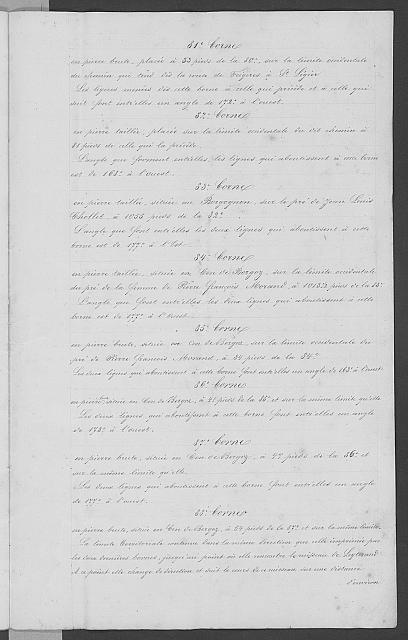 51e Borne
en pierre brute, placée à 33 pieds de la 50e, sur la limite occidentale
du chemin que tend dès la route de à St Légier
Les lignes menées dès cette borne à celle qui précède et à celle qui
suit font entr'elles un angle de 172° à l'ouest.
52e Borne
en pierre taillée, placée sur la limite occidentale du dit chemin à
81 pieds de celle qui la précède.
L'angle que forment entr'elles les lignes qui aboutissent à cette borne
est de 168° à l'ouest.
53e Borne
en pierre taillée, située en sur le pré de Jean Louis
Chollet à 1055 pieds de la 52e.
L'angle que font entr'elles les deux lignes qui aboutissent à cette
borne est de 177° à l'Est.
54e Borne
en pierre taillée, située en Con de Borgoz, sur la limite occidentale
du pré de la femme de Pierre François Morand, à pieds de la 53e
L'angle que font entr'elles les deux lignes qui aboutissent à cette
borne est de 177° à l'Ouest.
55e Borne
en pierre brute, située en Con de Borgoz, sur la limite occidentale du
pré de Pierre François Morand, à 84 pieds de la 54e
Les deux lignes qui aboutissent à cette borne font entr'elles un angle de 163° à l'ouest.
56e Borne
en pierre située en Con de Borgoz, à 41 pieds de la 55e et sur la même limite qu'elle
Les deux lignes qui aboutissent à cette borne font entr'elles un angle
de 178° à l'ouest.
57e Borne
en pierre brute, située en Con de Borgoz, à 27 pieds de la 56e et
sur la même limite qu'elle.
Les deux lignes qui aboutissent à cette borne font entr'elles un angle
de 177° à l'ouest.
58e Borne
en pierre brute, située en Con de Borgoz, à 24 pieds de la 57e et sur la même limite.
La limite territoriale continue dans la même direction que celle imprimée par
les deux dernières bornes, jusqu'au point où elle rencontre le ruisseau de
A ce point elle change de direction et suit le cours de ce ruisseau sur une distance
d'environ